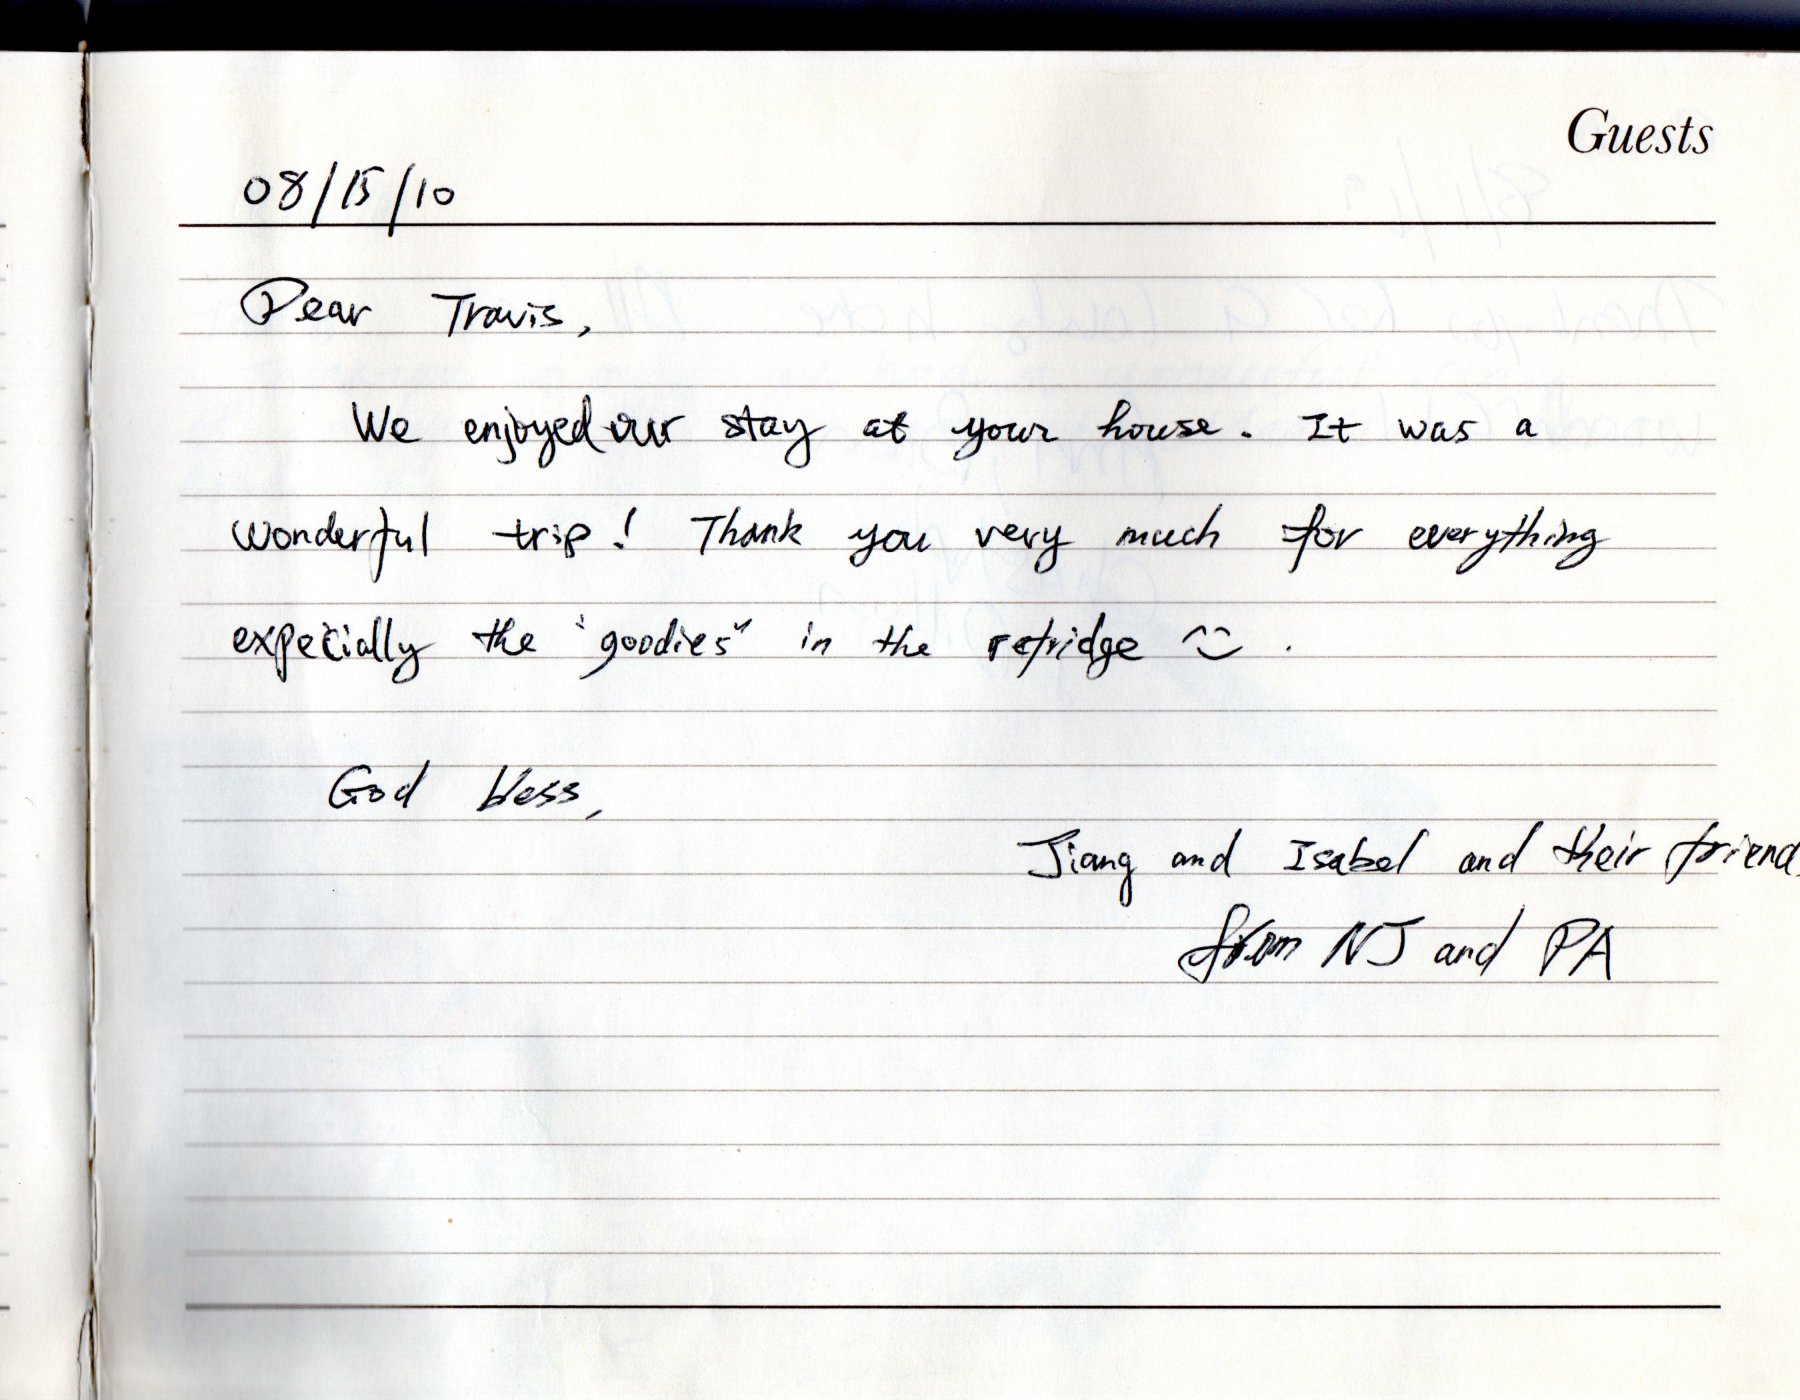 Guests
08/15/10
Dear Travis,
We enjoyed our stay at your house. It was a
wonderful trip! Thank you very much for everything
expecially the "goodies" in the refridge ^‿^.
God bless,
Jiang and Isabel and their friends
from NJ and PA